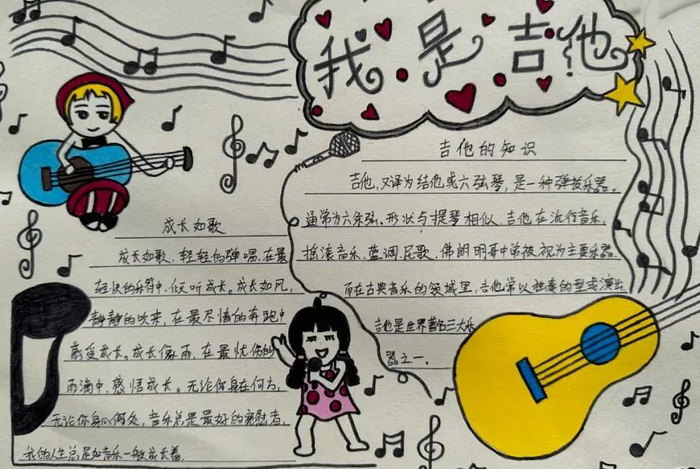 我是吉他
吉他的知识
吉他，又译为结他或六弦琴，是一种弹拨乐器。
通常为六条弦，形状与提琴相似，吉他在流行音乐，
摇滚音乐，蓝调，民歌，佛朗明哥中常被视为主要乐器
而在古典音乐的领域里，吉他常以独奏的型式演出
吉他是世界著名三大乐
器之一。
成长如歌
成长如歌，轻轻的弹唱，在最
轻快的乐符中，倾听成长。成长如风，
静静的吹来，在最尽情的奔跑中
感受成长，成长像雨，在最忧伤的
雨滴中，感悟成长。无论你身在何方，
无论你身心何处，音乐总是最好的安慰者，
我的人生总是如音乐一般成长着